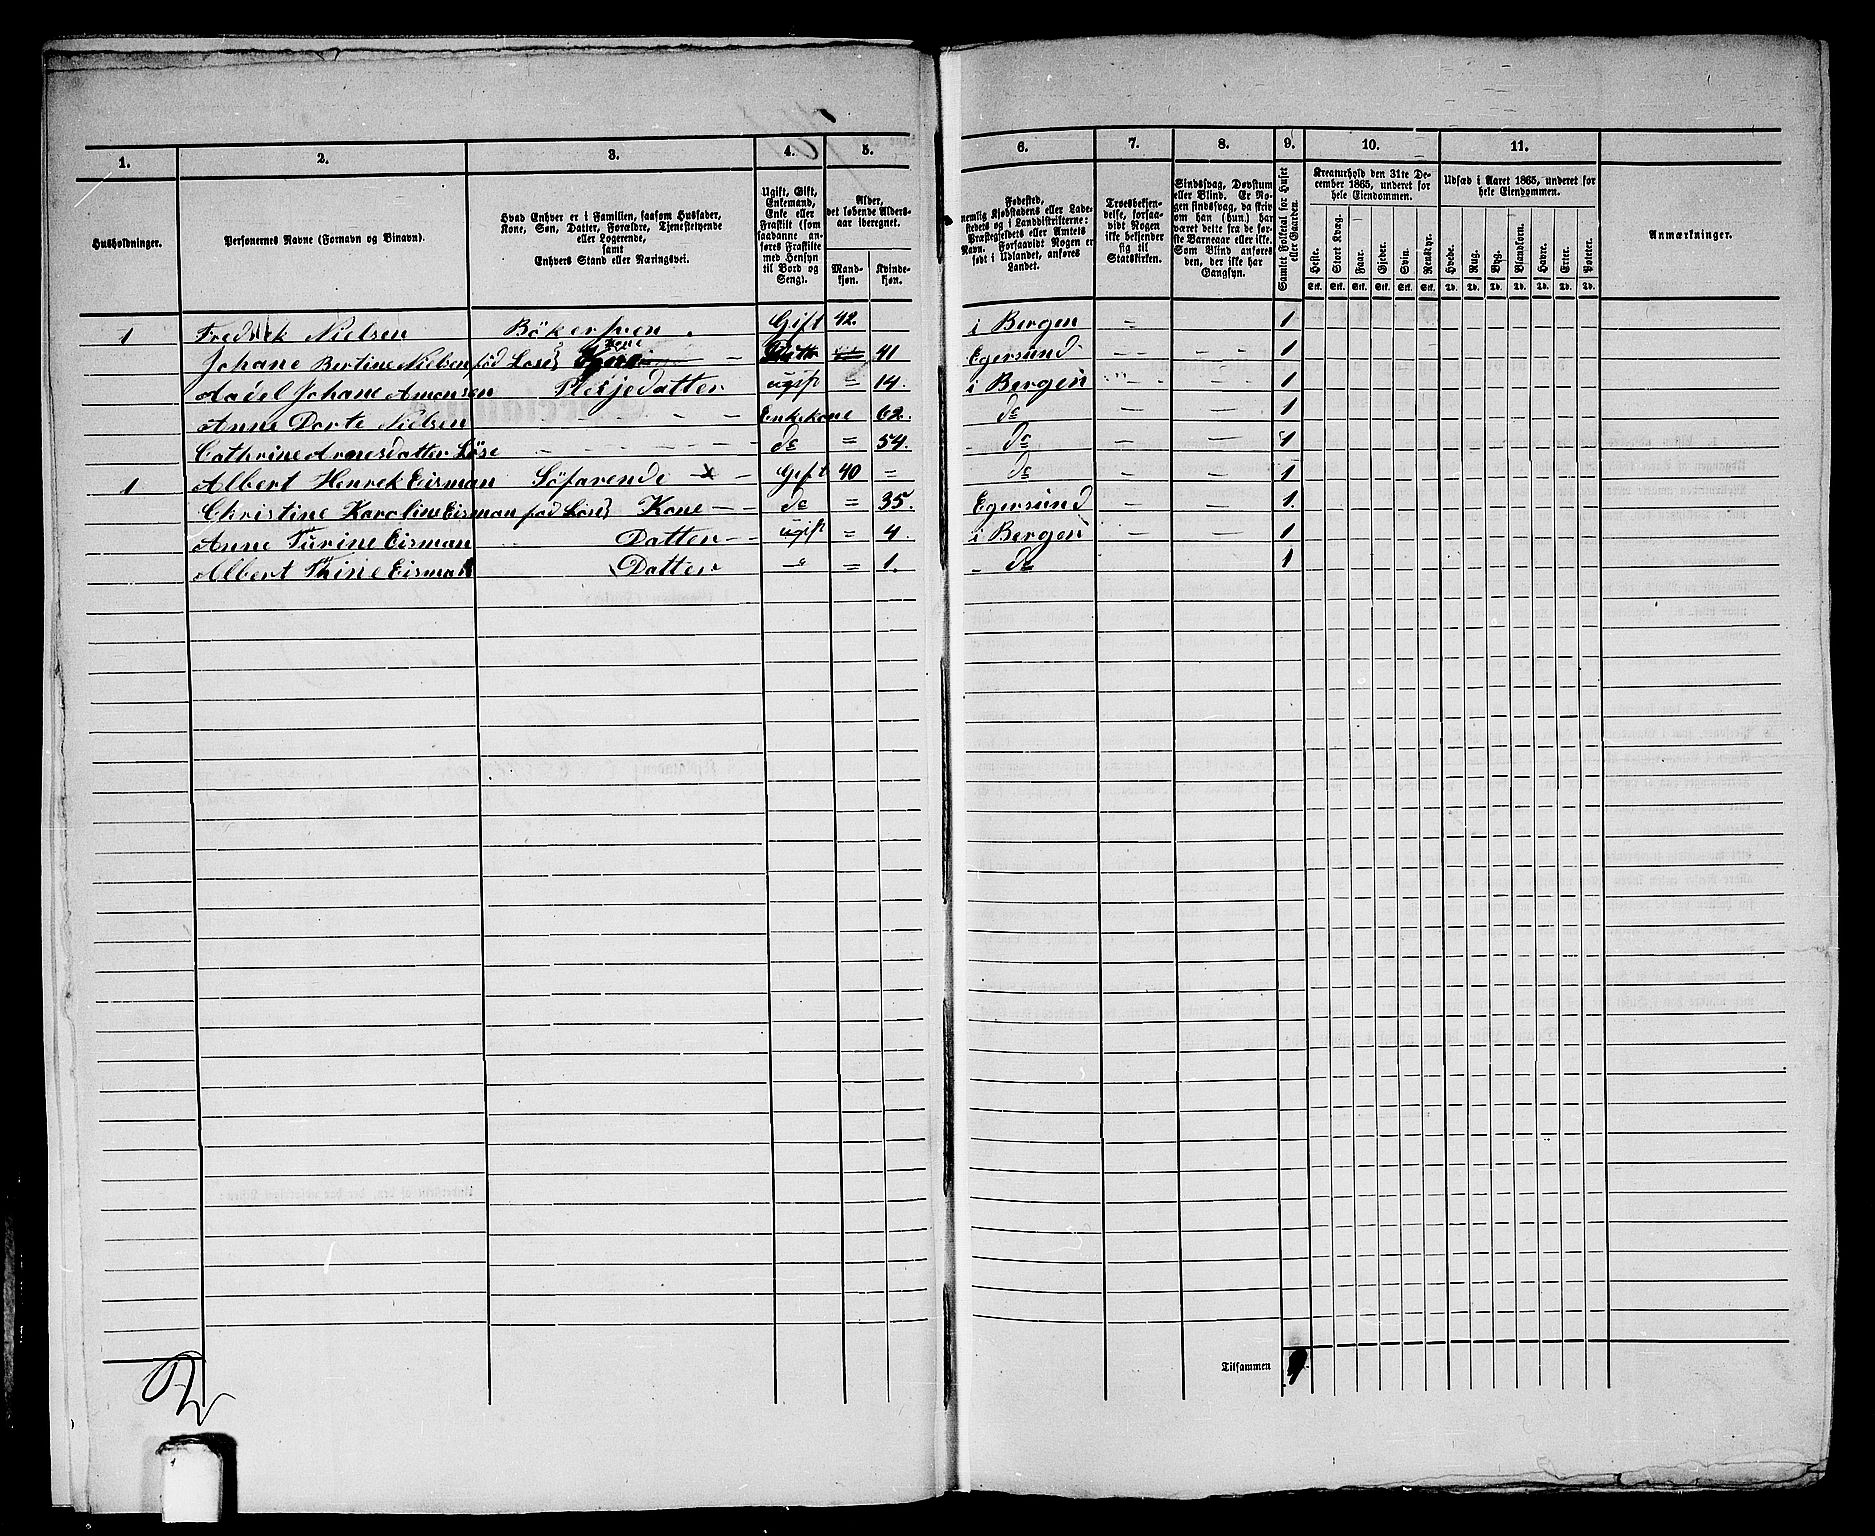 1. 2. 3. 4. 5. 6. 7. 8. 9. 10. 11.
Husholdninger.
Personernes Navne (Fornavn og Binavn).
Hvad Enhver er i Familien, saasom Husfader, Kone, Søn, Datter, Forældre, Tjenestetyende eller Logerende, samt Enhvers Stand eller Næringsvei.
Ugift, Gift, Enkemand, Enke eller Fraskilt (som saadanne anføres Fraskilte med Hensyn til Bord og Seng).
Alder, det løbende Aldersaar iberegnet.
Mandkjøn. Kvindekjøn.
Fødested, nemlig Kjøbstadens eller Ladestedets og i Landdistrikterne: Præstegjeldets eller Amtets Navn. Forsaavidt Nogen er født i Udlandet, anføres Landet.
Troesbekjendelse, forsaavidt Nogen ikke bekjender sig til Statskirken.
Sindssvag, Døvstum eller Blind. Er Nogen sindssvag, da skriv om han (hun) har været dette fra de første Barneaar eller ikke. Som Blind anføres den, der ikke har Gangsyn.
Samlet Folketal for Huset eller Gaarden.
Kreaturhold den 31te December 1865, underet for hele Eiendommen.
Heste. Stort Kvæg. Faar. Gjeder. Svin. Rensdyr.
Stk. Stk. Stk. Stk. Stk. Stk.
Udsæd i Aaret 1865, underet for hele Eiendommen.
Hvede. Rug. Byg. Blandkorn. Havre. Erter. Poteter.
Td. Td. Td. Td. Td. Td. Td.
Anmærkninger.
1 Fredrik Nielsen Bökersven. Gift 42. i Bergen 1
Johane Bertine Nielsen föd Löse Kone 41 Egersund 1
Johane Amonsen Pleiedatter ugift 14. i Bergen 1
Anne Dorte Nielsen Enkekone 62. do 1
Cathrine Arnesdatter Löse do 54. do 1
1 Albert Henrek Eisman Söfarende x Gift 40 do 1
Christine Karoline Eisman föd Löse Kone do 35. Egersund 1.
Anne Turine Eisman Datter ugift 4. i Bergen 1
Albert Trine Eisman Datter " 1. do 1
Tilsammen 9